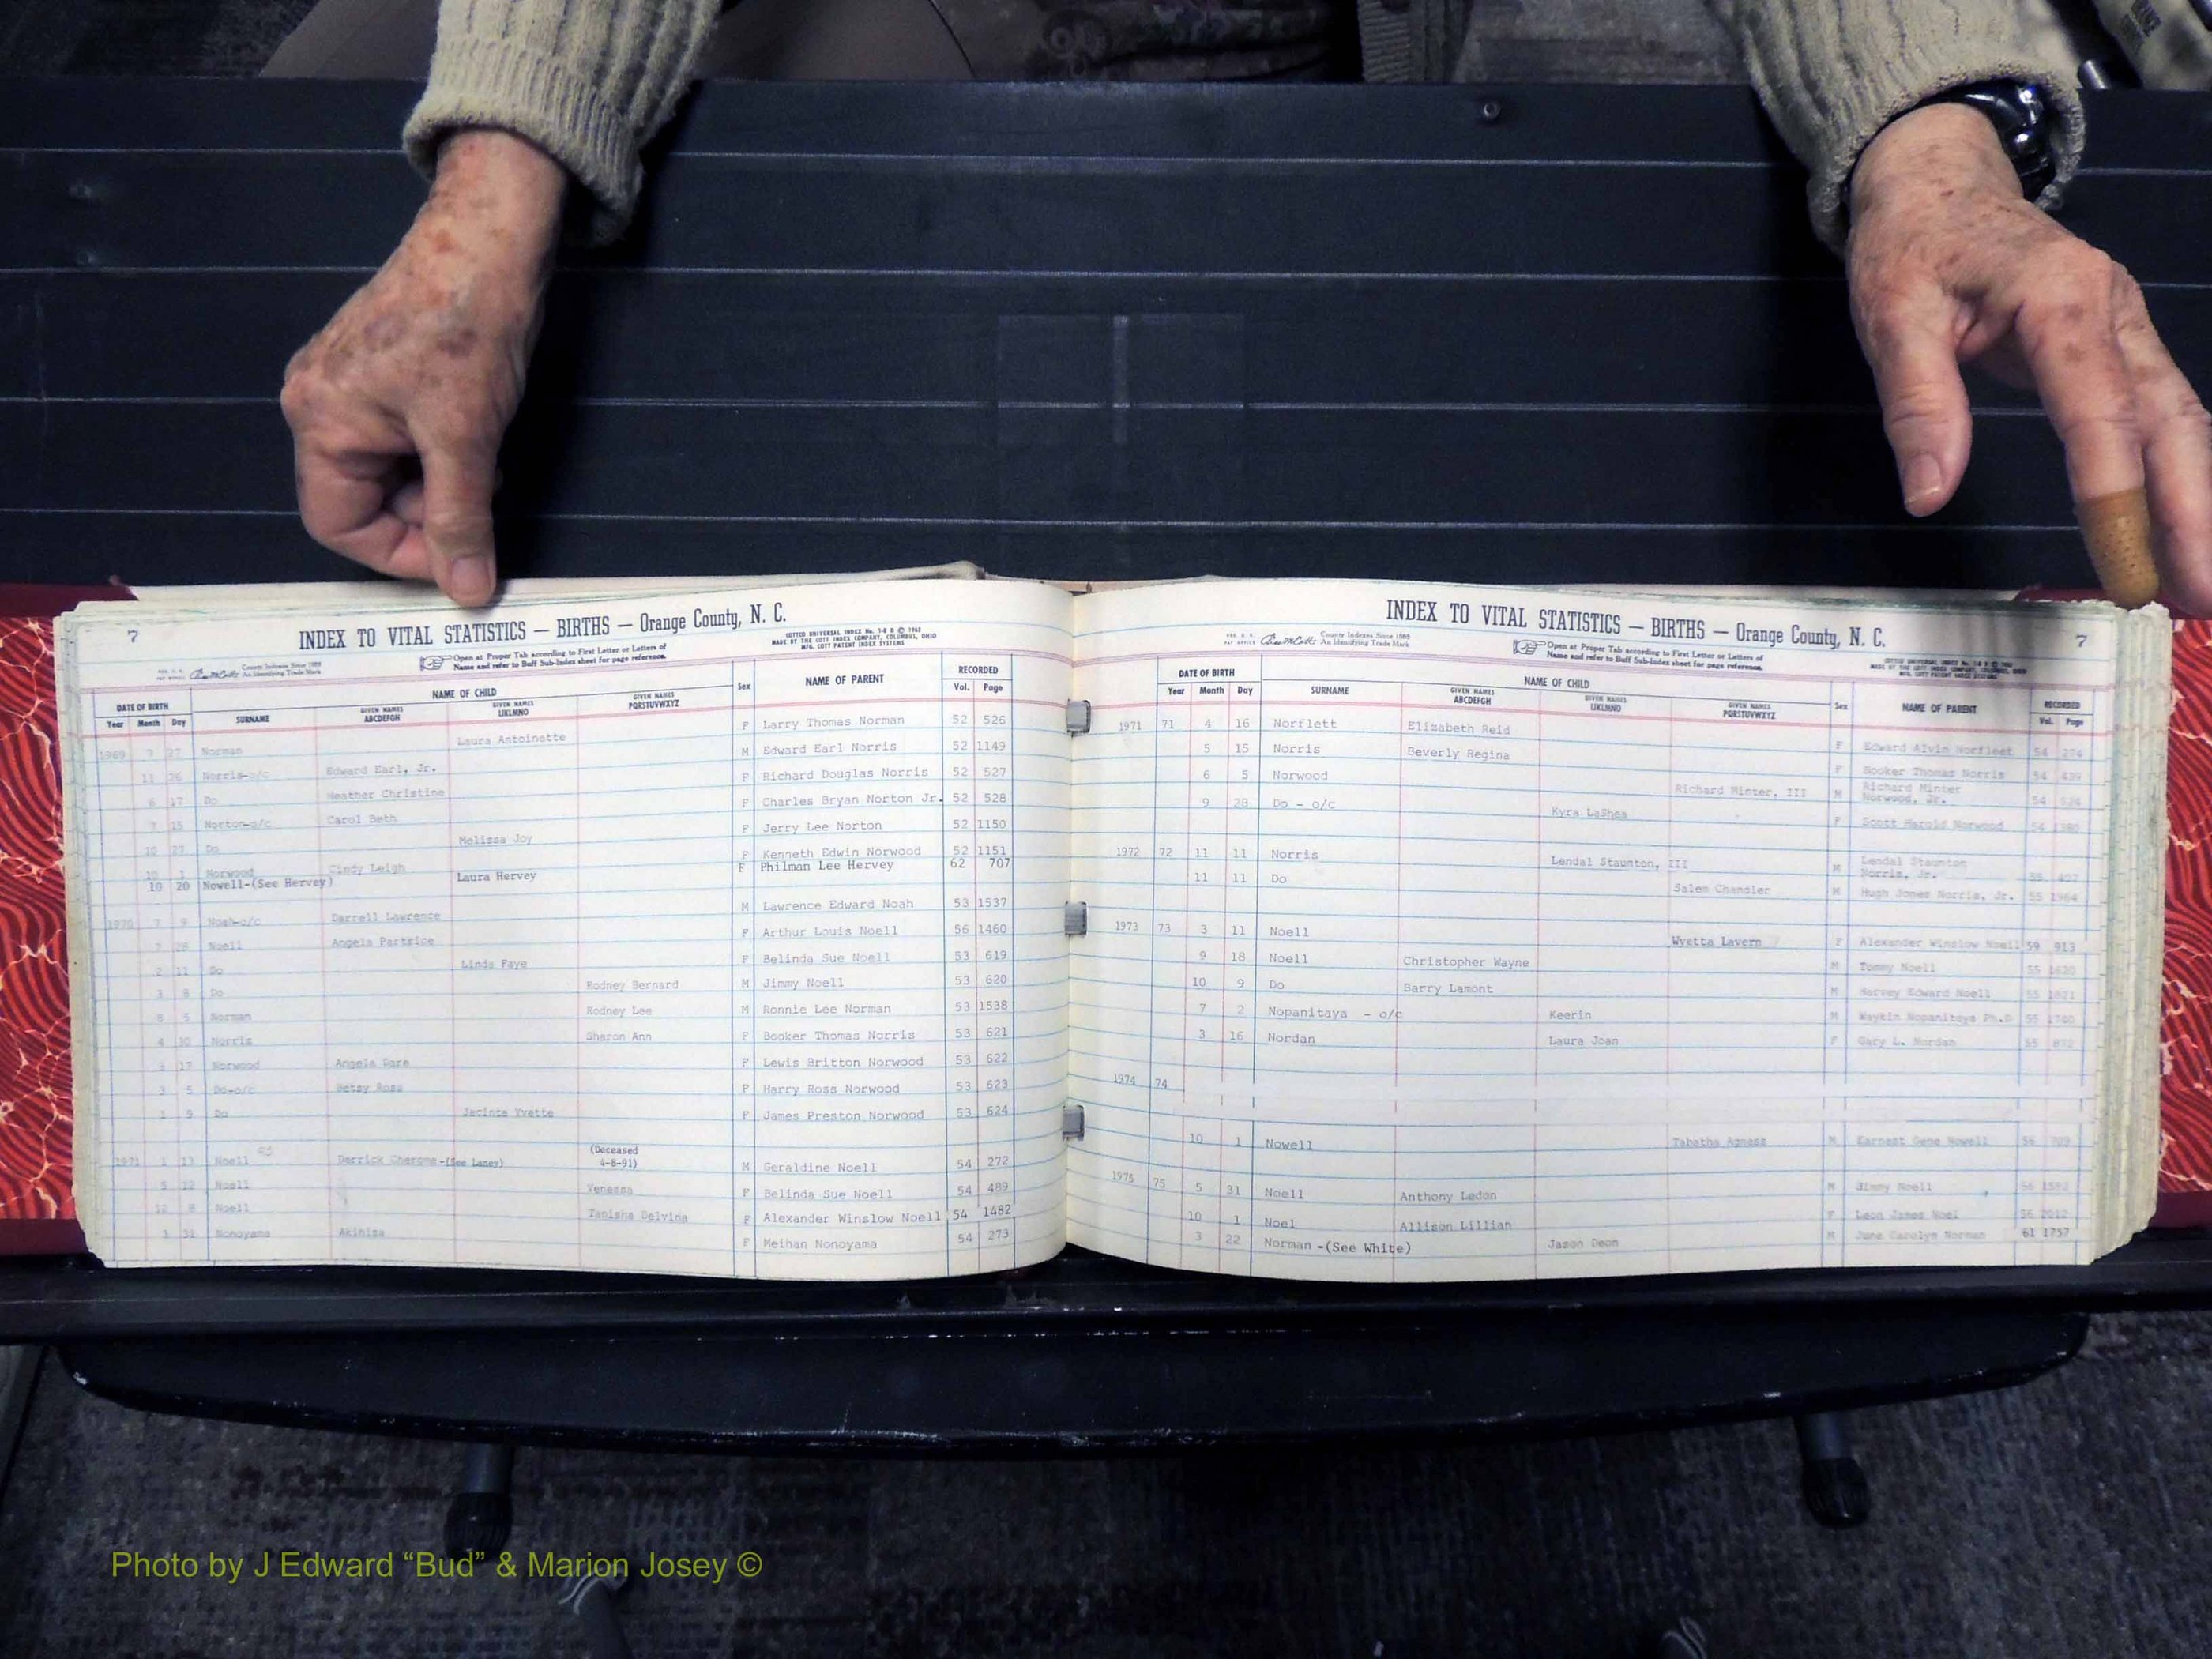 7
INDEX TO VITAL STATISTICS — BIRTHS — Orange County, N. C.
COTTCO UNIVERSAL INDEX No. 1-8 B © 1962
MADE BY THE COTT INDEX COMPANY, COLUMBUS, OHIO
MFG. COTT PATENT INDEX SYSTEMS
County Indexes Since 1888
An Identifying Trade Mark
Open at Proper Tab according to First Letter or Letters of
Name and refer to Buff Sub-Index sheet for page reference.
DATE OF BIRTH NAME OF CHILD Sex NAME OF PARENT RECORDED
Year Month Day SURNAME GIVEN NAMES ABCDEFGH GIVEN NAMES IJKLMNO GIVEN NAMES PQRSTUVWXYZ Vol. Page
1969 7 27 Norman Laura Antoinette F Larry Thomas Norman 52 526
11 26 Norris-o/c Edward Earl, Jr. M Edward Earl Norris 52 1149
6 17 Do Heather Christine F Richard Douglas Norris 52 527
7 15 Norton-o/c Carol Beth F Charles Bryan Norton Jr. 52 528
10 27 Do Melissa Joy F Jerry Lee Norton 52 1150
10 1 Norwood Cindy Leigh F Kenneth Edwin Norwood 52 1151
10 20 Nowell-(See Hervey) Laura Hervey F Philman Lee Hervey 62 707
1970 7 9 Noah-o/c Darrell Lawrence M Lawrence Edward Noah 53 1537
7 28 Noell Angela Partrice F Arthur Louis Noell 56 1460
2 11 Do Linda Faye F Belinda Sue Noell 53 619
3 8 Do Rodney Bernard M Jimmy Noell 53 620
8 5 Norman Rodney Lee M Ronnie Lee Norman 53 1538
4 30 Norris Sharon Ann F Booker Thomas Norris 53 621
3 17 Norwood Angela Dare F Lewis Britton Norwood 53 622
3 5 Do-o/c Betsy Ross F Harry Ross Norwood 53 623
1 9 Do Jacinta Yvette F James Preston Norwood 53 624
1971 1 13 Noell Derrick Cherome-(See Laney) (Deceased 4-8-91) M Geraldine Noell 54 272
5 12 Noell Venessa F Belinda Sue Noell 54 489
12 8 Noell Tanisha Delvina F Alexander Winslow Noell 54 1482
3 31 Nonoyama Akihisa F Meihan Nonoyama 54 273
INDEX TO VITAL STATISTICS — BIRTHS — Orange County, N. C.
7
County Indexes Since 1888
An Identifying Trade Mark
Open at Proper Tab according to First Letter or Letters of
Name and refer to Buff Sub-Index sheet for page reference.
DATE OF BIRTH NAME OF CHILD Sex NAME OF PARENT RECORDED
Year Month Day SURNAME GIVEN NAMES ABCDEFGH GIVEN NAMES IJKLMNO GIVEN NAMES PQRSTUVWXYZ Vol. Page
1971 71 4 16 Norflett Elizabeth Reid F Edward Alvin Norfleet 54 274
5 15 Norris Beverly Regina F Booker Thomas Norris 54 439
6 5 Norwood Richard Minter, III M Richard Minter Norwood, Jr. 54
9 28 Do - o/c Kyra LaShea F Scott Harold Norwood 54
1972 72 11 11 Norris Lendal Staunton, III M Lendal Staunton Norris, Jr. 55
11 11 Do Salem Chandler M Hugh Jones Norris, Jr. 55 1964
1973 73 3 11 Noell Wyetta Lavern F Alexander Winslow Noell 59 913
9 18 Noell Christopher Wayne M Tommy Noell 55 1620
10 9 Do Barry Lamont M Harvey Edward Noell 55 1821
7 2 Nopanitaya - o/c Keerin M Waykin Nopanitaya Ph.D 55
3 16 Nordan Laura Joan F Gary L. Nordan 55
1974 74
10 1 Nowell Tabatha Agness M Earnest Gene Nowell 56 709
1975 75 5 31 Noell Anthony Ledon M Jimmy Noell 56
10 1 Noel Allison Lillian F Leon James Noel 56 2012
3 22 Norman -(See White) Jason Deon M June Carolyn Norman 61 1757
Photo by J Edward “Bud” & Marion Josey ©